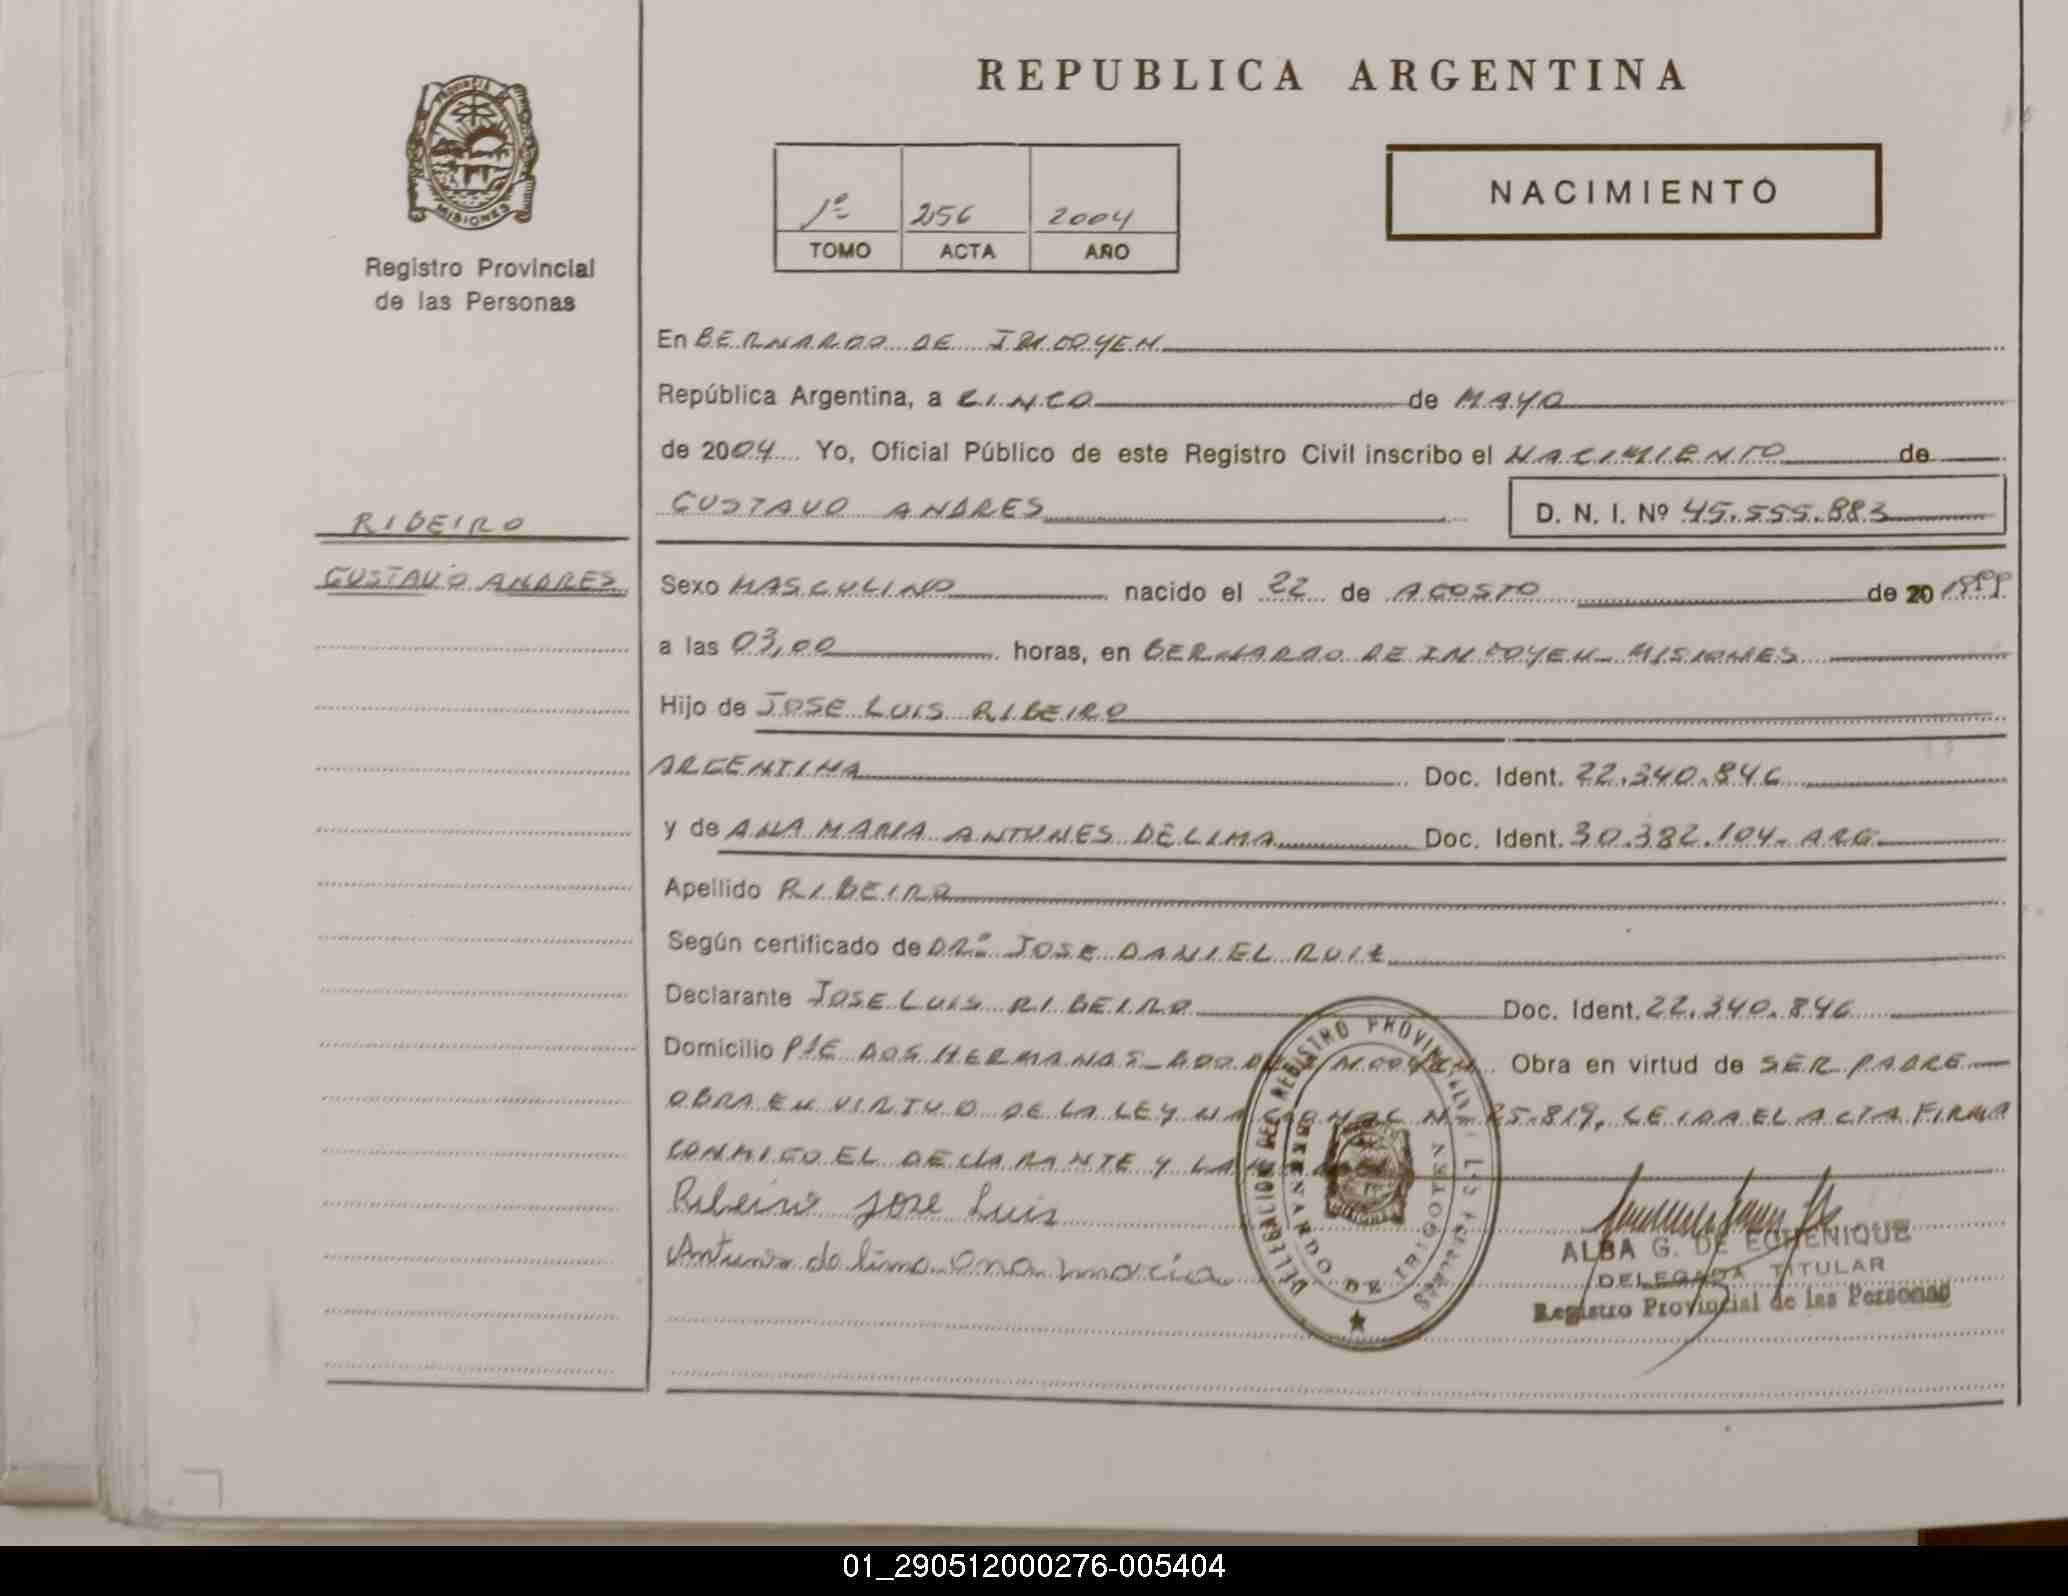 REPUBLICA ARGENTINA
PROVINCIA DE
MISIONES
Registro Provincial
de las Personas
1º 256 2004
TOMO ACTA AÑO
NACIMIENTO
En BERNARDO DE IRIGOYEN
República Argentina, a CINCO de MAYO
de 2004 Yo, Oficial Público de este Registro Civil inscribo el NACIMIENTO de
GUSTAVO ANDRES D. N. I. Nº 45.555.883
RIBEIRO
GUSTAVO ANDRES
Sexo MASCULINO nacido el 22 de AGOSTO de 20 1999
a las 03,00 horas, en BERNARDO DE IRIGOYEN - MISIONES
Hijo de JOSE LUIS RIBEIRO
ARGENTINA Doc. Ident. 22.340.846
y de ANA MARIA ANTUNES DE LIMA Doc. Ident. 30.382.104- ARG.
Apellido RIBEIRO
Según certificado de DRº JOSE DANIEL RUIZ
Declarante JOSE LUIS RIBEIRO Doc. Ident. 22.340.846
Domicilio PJE DOS HERMANAS - BDO DE IRIGOYEN Obra en virtud de SER PADRE
OBRA EN VIRTUD DE LA LEY NACIONAL Nº 25.819, LEIDA EL ACTA FIRMA
CONMIGO EL DECLARANTE Y LA
Ribeiro Jose Luis
Antunes de lima Ana maria
DELEGACION DEL REGISTRO PROVINCIAL DE LAS PERSONAS
BERNARDO DE IRIGOYEN
ALBA G. DE ECHENIQUE
DELEGADA TITULAR
Registro Provincial de las Personas
01_290512000276-005404